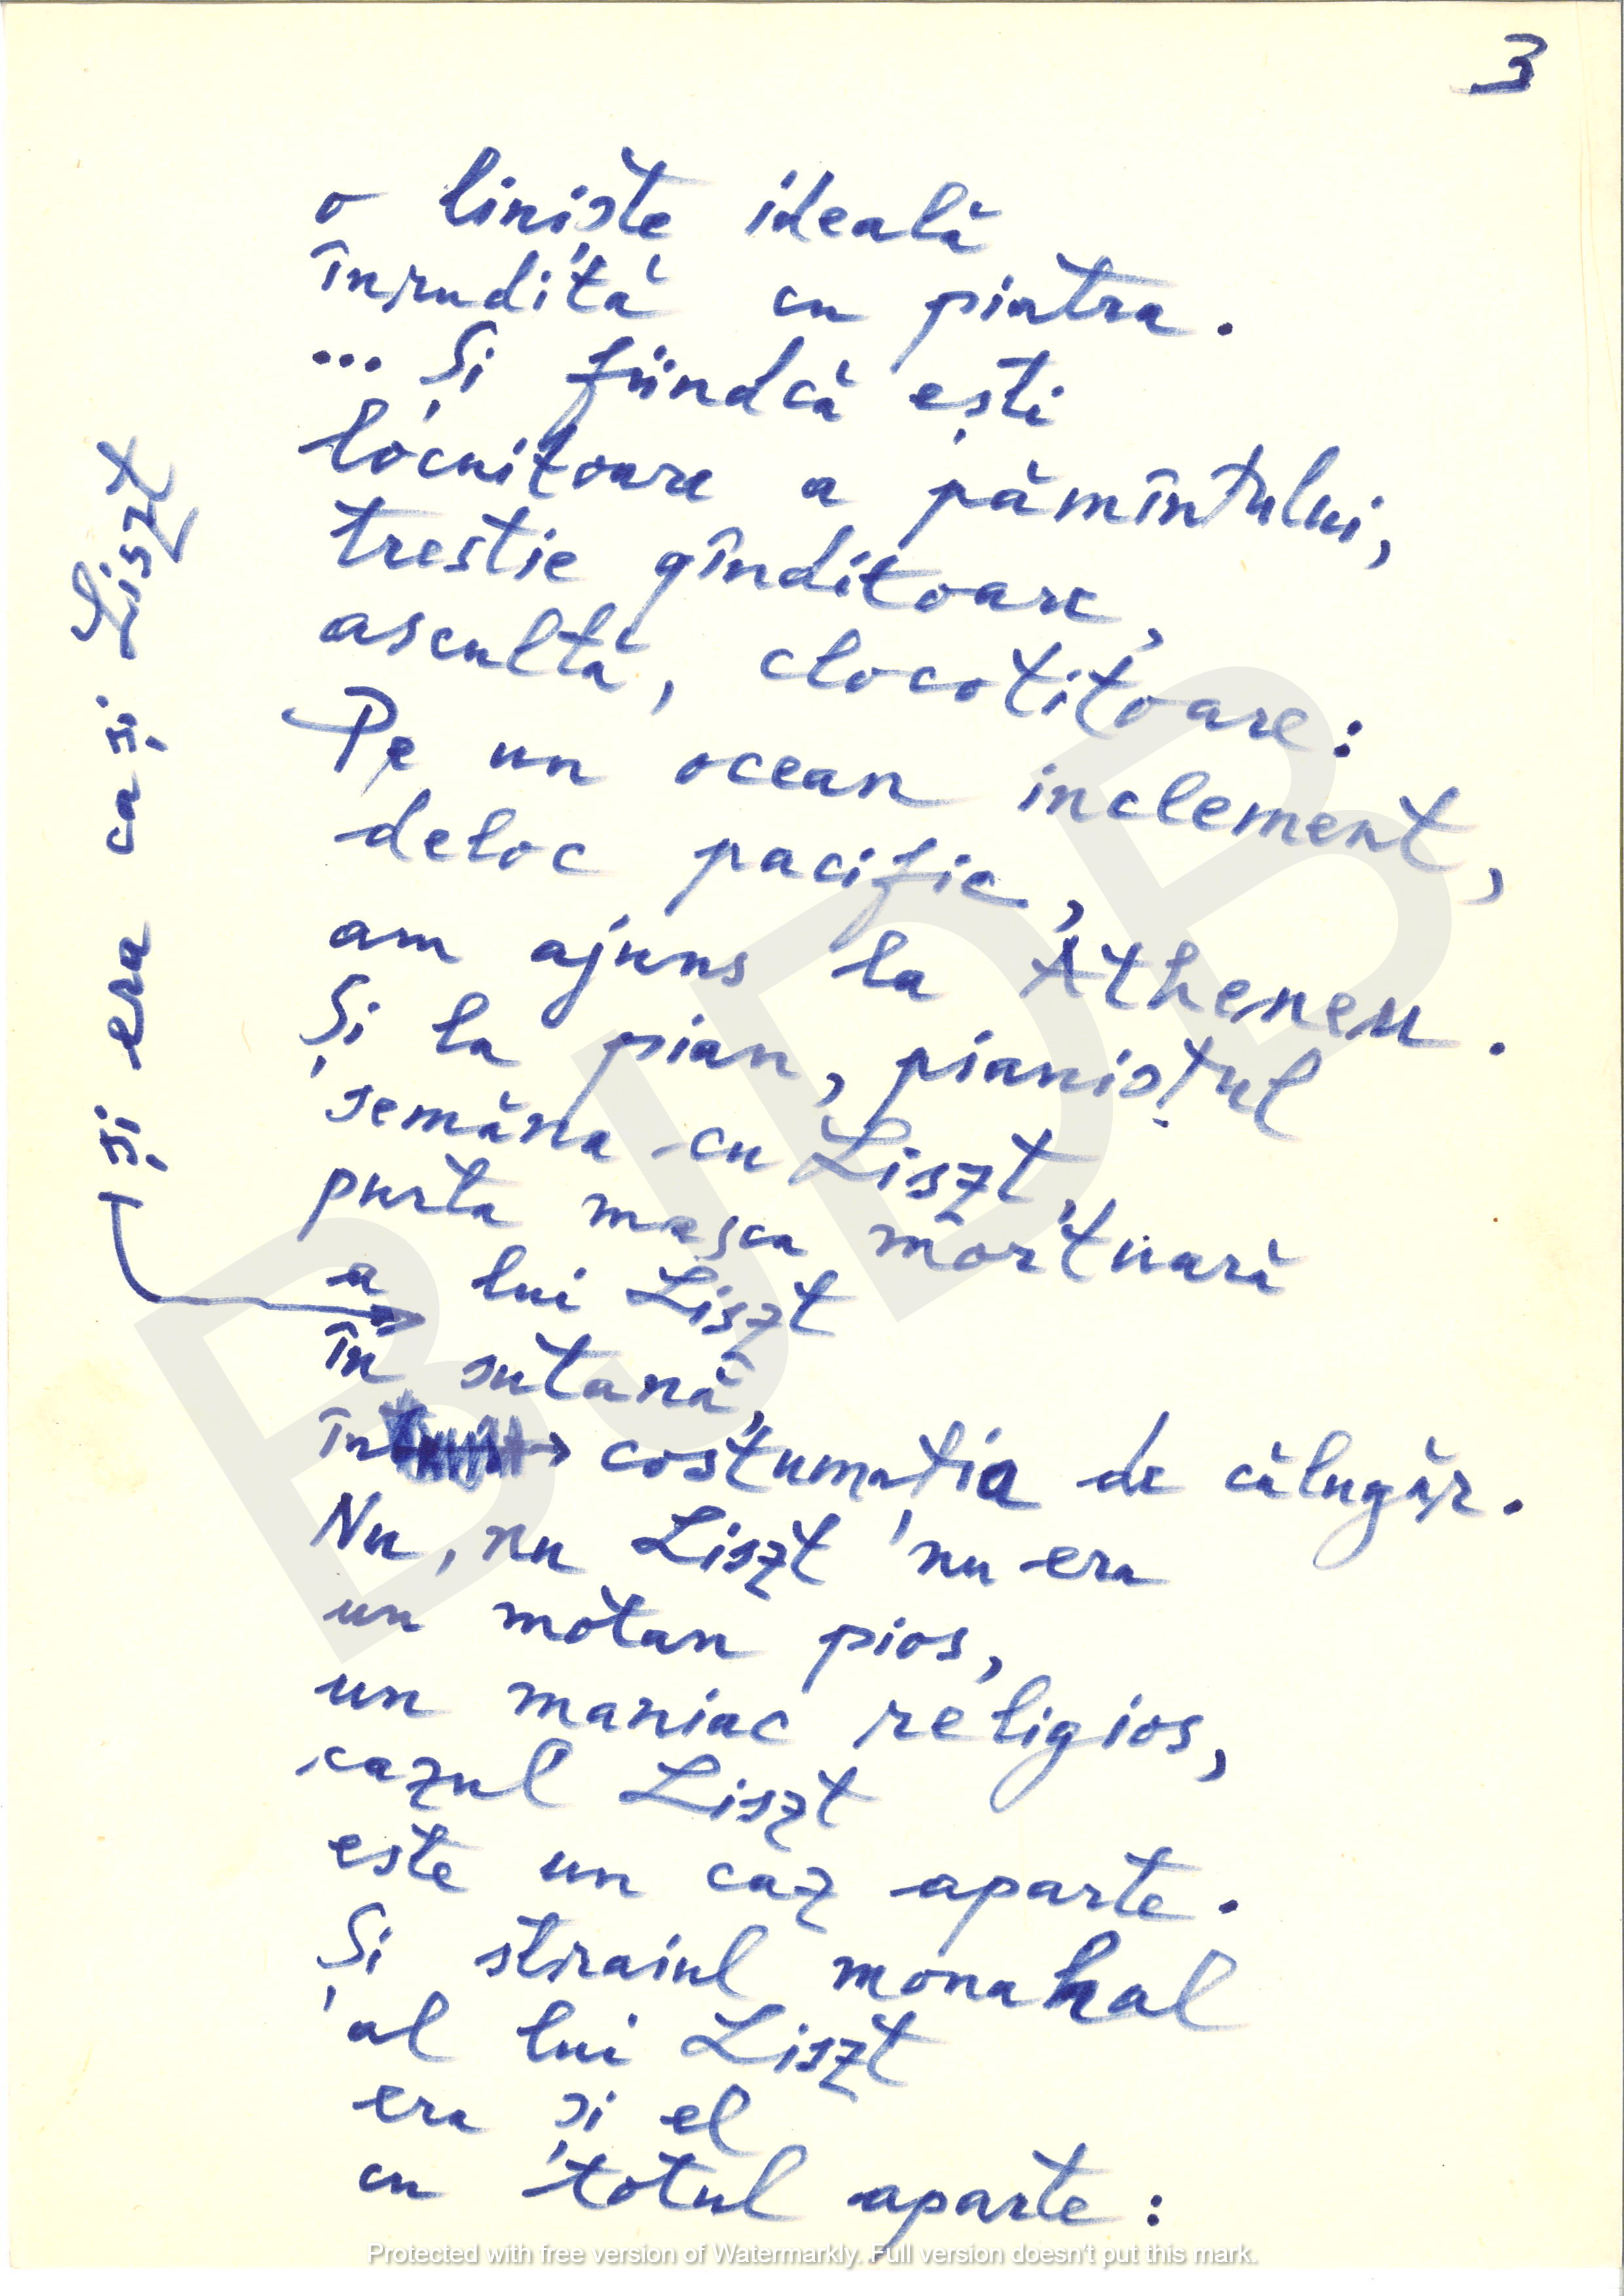 3
o liniște ideală
înrudită cu piatra.
... Și fiindcă ești
locuitoare a pămîntului,
trestie gînditoare,
ascultă, clocotitoare:
Pe un ocean inclement,
deloc pacific,
am ajuns la Atheneu.
Și la pian, pianistul
semăna cu Liszt,
purta masca mortuară
a lui Liszt
și era ca și Liszt
în sutană,
în costumația de călugăr.
Nu, nu Liszt nu era
un motan pios,
un maniac religios,
cazul Liszt
este un caz aparte.
Și straiul monahal
al lui Liszt
era și el
cu totul aparte:
BJDB
Protected with free version of Watermarkly. Full version doesn't put this mark.